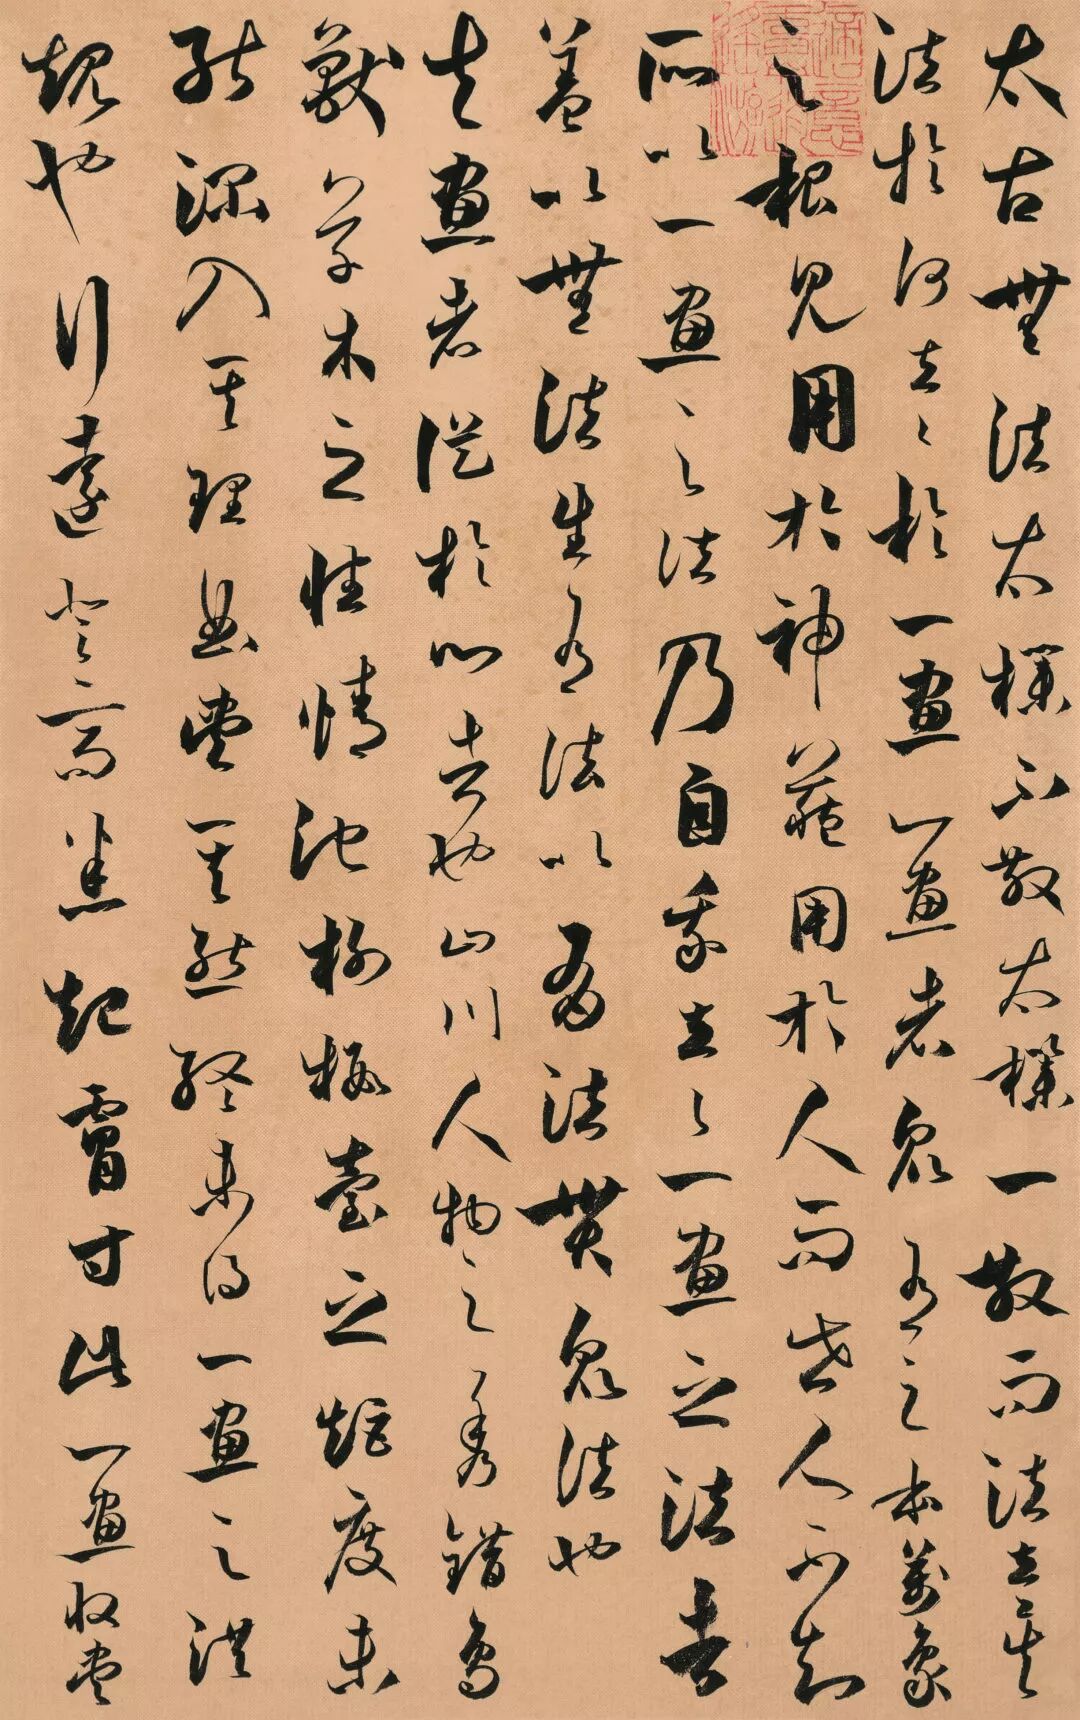 太古無法太樸不散太樸一散而法立矣
法於何立立於一畫一畫者衆有之本萬象
之根見用於神藏用於人而世人不知
所以一畫之法乃自我立立一畫之法者
蓋以無法生有法以有法貫衆法也
夫畫者從於心者也山川人物之秀錯鳥
獸草木之性情池榭樓臺之矩度未
能深入其理曲盡其態終未得一畫之洪
規也行遠登高悉起膚寸此一畫收盡